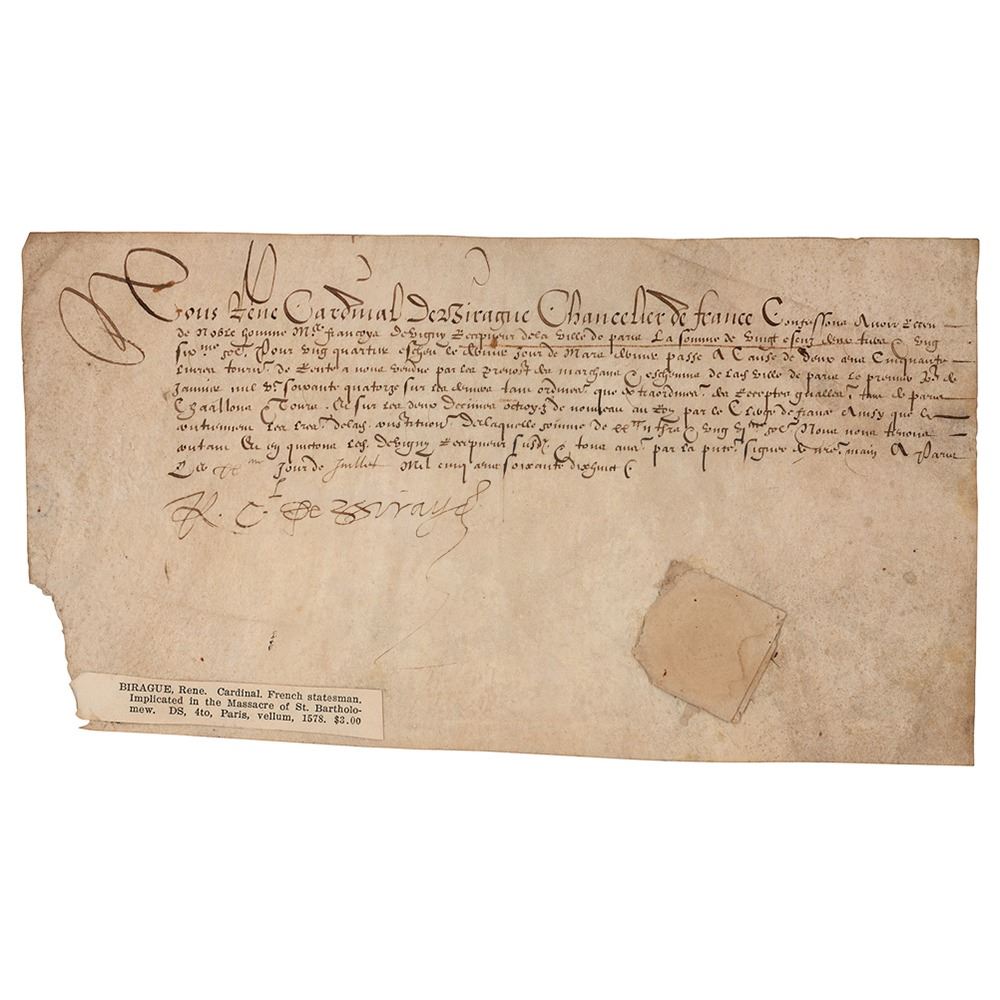 Nous Rene Cardinal De Birague Chancelier de france Confessons Avoir Receu
de Noble homme Me francoys de Vigny Receveur de la Ville de paris La somme de Vingt escuz deux tiers & ung
sixme Pour ung quartier escheu le dernier Jour de Mars dernier passe A Cause de deux cens Cinquante
livres tourn. de Rente a nous vendue par les Prevost des marchans & eschevins de lad. Ville de paris le premier Jor de
Janvier mil Vc soixante quatorze sur les deniers tant ordinres que extraordinres des Receptes gnalles tant de paris
Chaallons & Tours sur les deux Decimes octroyez de nouveau au Roy par le Clerge de france Ainsy que le
contiennent les lres de lad. constitution De laquelle somme de ung vime Nous nous tenons
contans en quictons led. de Vigny Receveur susd. & tous aues par la pnte signee de nre main A Paris
Le Jour de Juillet Mil cinq cens soixante dixhuict
R. Cl De Birague
BIRAGUE, Rene. Cardinal. French statesman.
Implicated in the Massacre of St. Bartholo-
mew. DS, 4to, Paris, vellum, 1578. $3.00